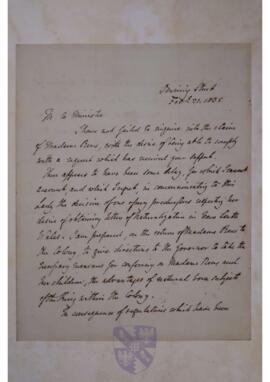 Downing Street
Feb. 21. 1835
M. le Ministre
I have not failed to enquire into the claim
of Madame Rens, with the desire of being able to comply
with a request which has received your support.
There appears to have been some delay, for which I cannot
account, and which I regret, in communicating to this
Lady the decision of one of my predecessors respecting her
desire of obtaining letters of Naturalization in New South
Wales. I am prepared, on the return of Madame Rens to
the Colony, to give directions to the Governor to take the
necessary measures for conferring on Madame Rens and
her children, the advantages of natural born subjects
of the King within the Colony.
In consequence of regulations which have been